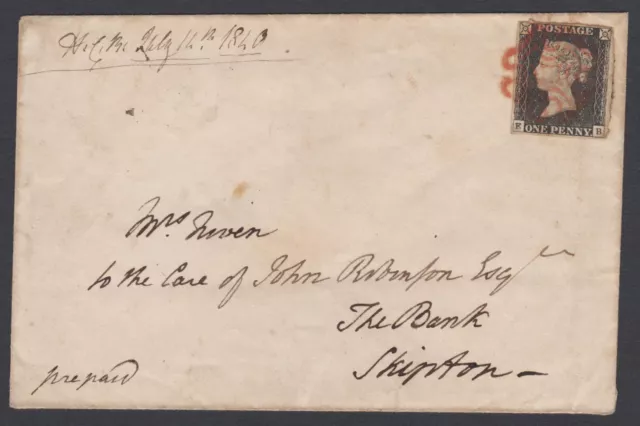 July 14th 1840
POSTAGE
E ONE PENNY. B
Mrs Niven
to the Care of John Robinson Esqre
The Bank
Skipton –
prepaid